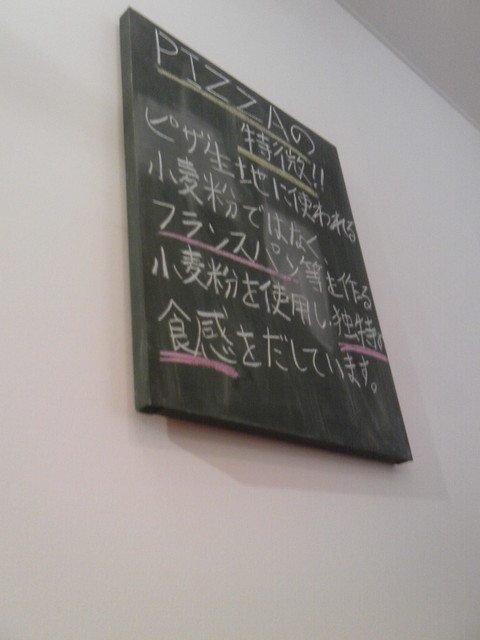 PIZZAの
特徴!!
ピザ生地に使われる
小麦粉ではなく、
フランスパン等を作る
小麦粉を使用し独特の
食感をだしています。